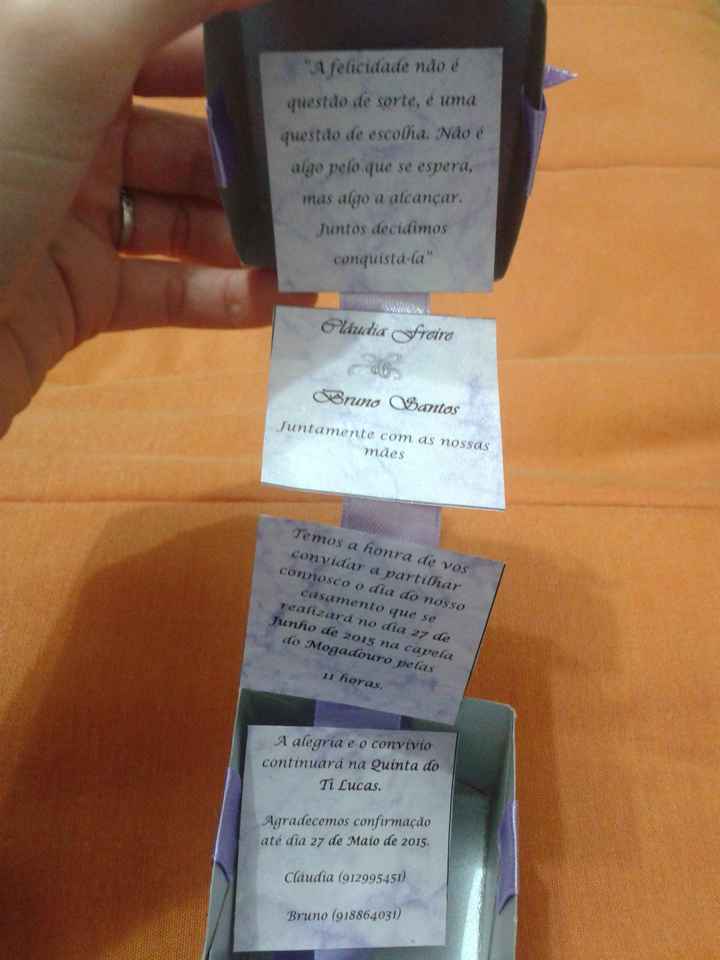 "A felicidade não é
questão de sorte, é uma
questão de escolha. Não é
algo pelo que se espera,
mas algo a alcançar.
Juntos decidimos
conquistá-la"
Cláudia Freire
Bruno Santos
Juntamente com as nossas
mães
Temos a honra de vos
convidar a partilhar
connosco o dia do nosso
casamento que se
realizará no dia 27 de
Junho de 2015 na capela
do Mogadouro pelas
11 horas.
A alegria e o convívio
continuará na Quinta do
Ti Lucas.
Agradecemos confirmação
até dia 27 de Maio de 2015.
Cláudia (912995451)
Bruno (918864031)